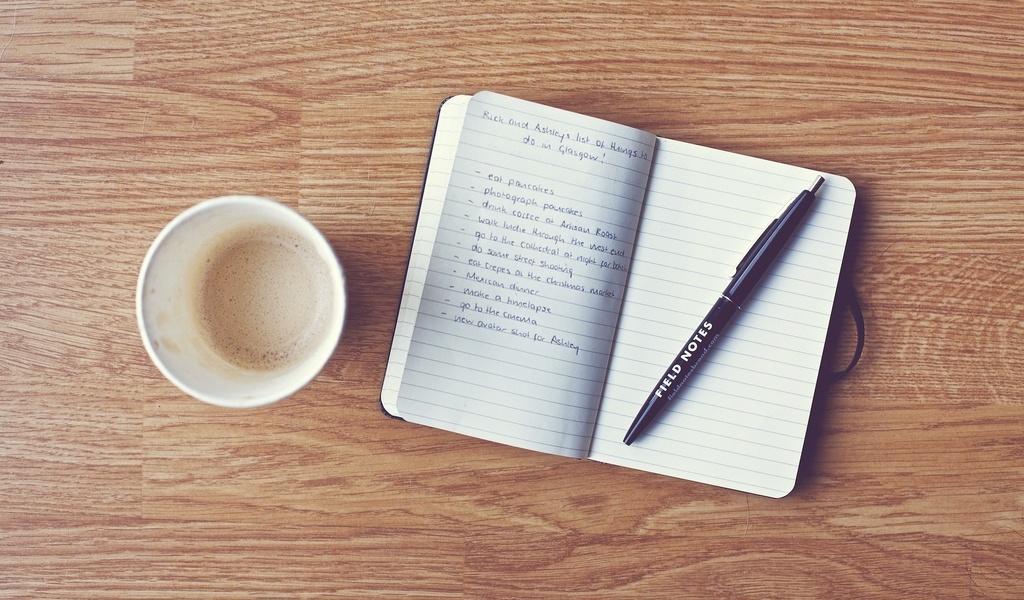 Rick and Ashley's list of things to
do in Glasgow!
- eat pancakes
- photograph pancakes
- drink coffee at Artisan Roast
- walk Indie through the west end
- go to the cathedral at night for
- do some street shooting
- eat crepes at the christmas market
- Mexican dinner
- make a timelapse
- go to the cinema
- new avatar shot for Ashley
FIELD NOTES